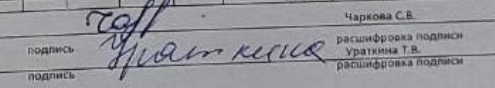 Чарф Чаркова С.В.
подпись расшифровка подписи
Ураткина Ураткина Т.В.
подпись расшифровка подписи